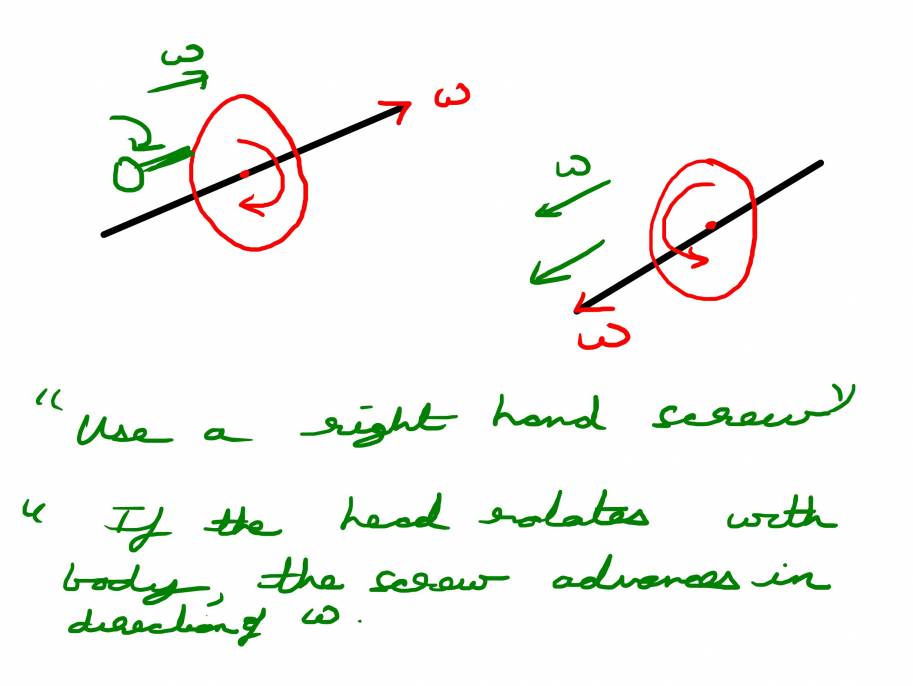 ω
ω
ω
ω
"Use a right hand screw"
" If the head rotates with
body, the screw advances in
direction of ω.